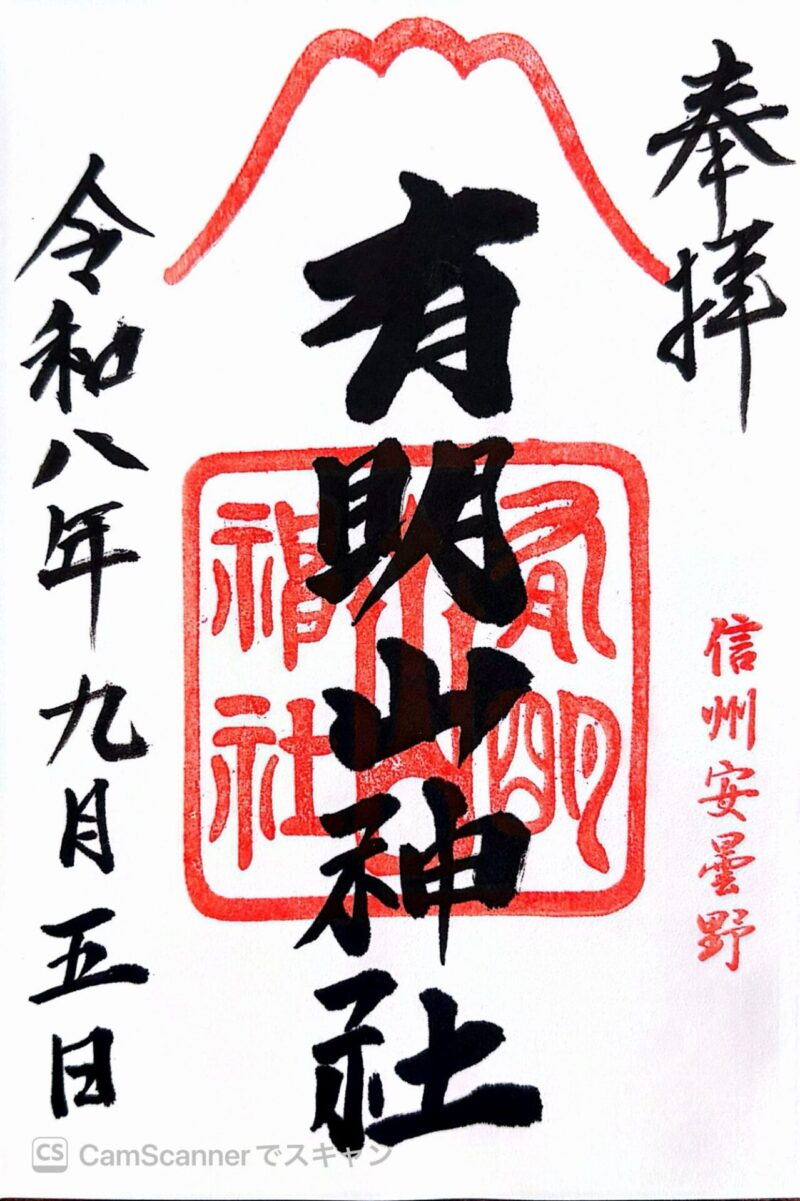 奉拝
信州安曇野
有明山神社
有明山神社
令和八年九月五日
CS CamScannerでスキャン